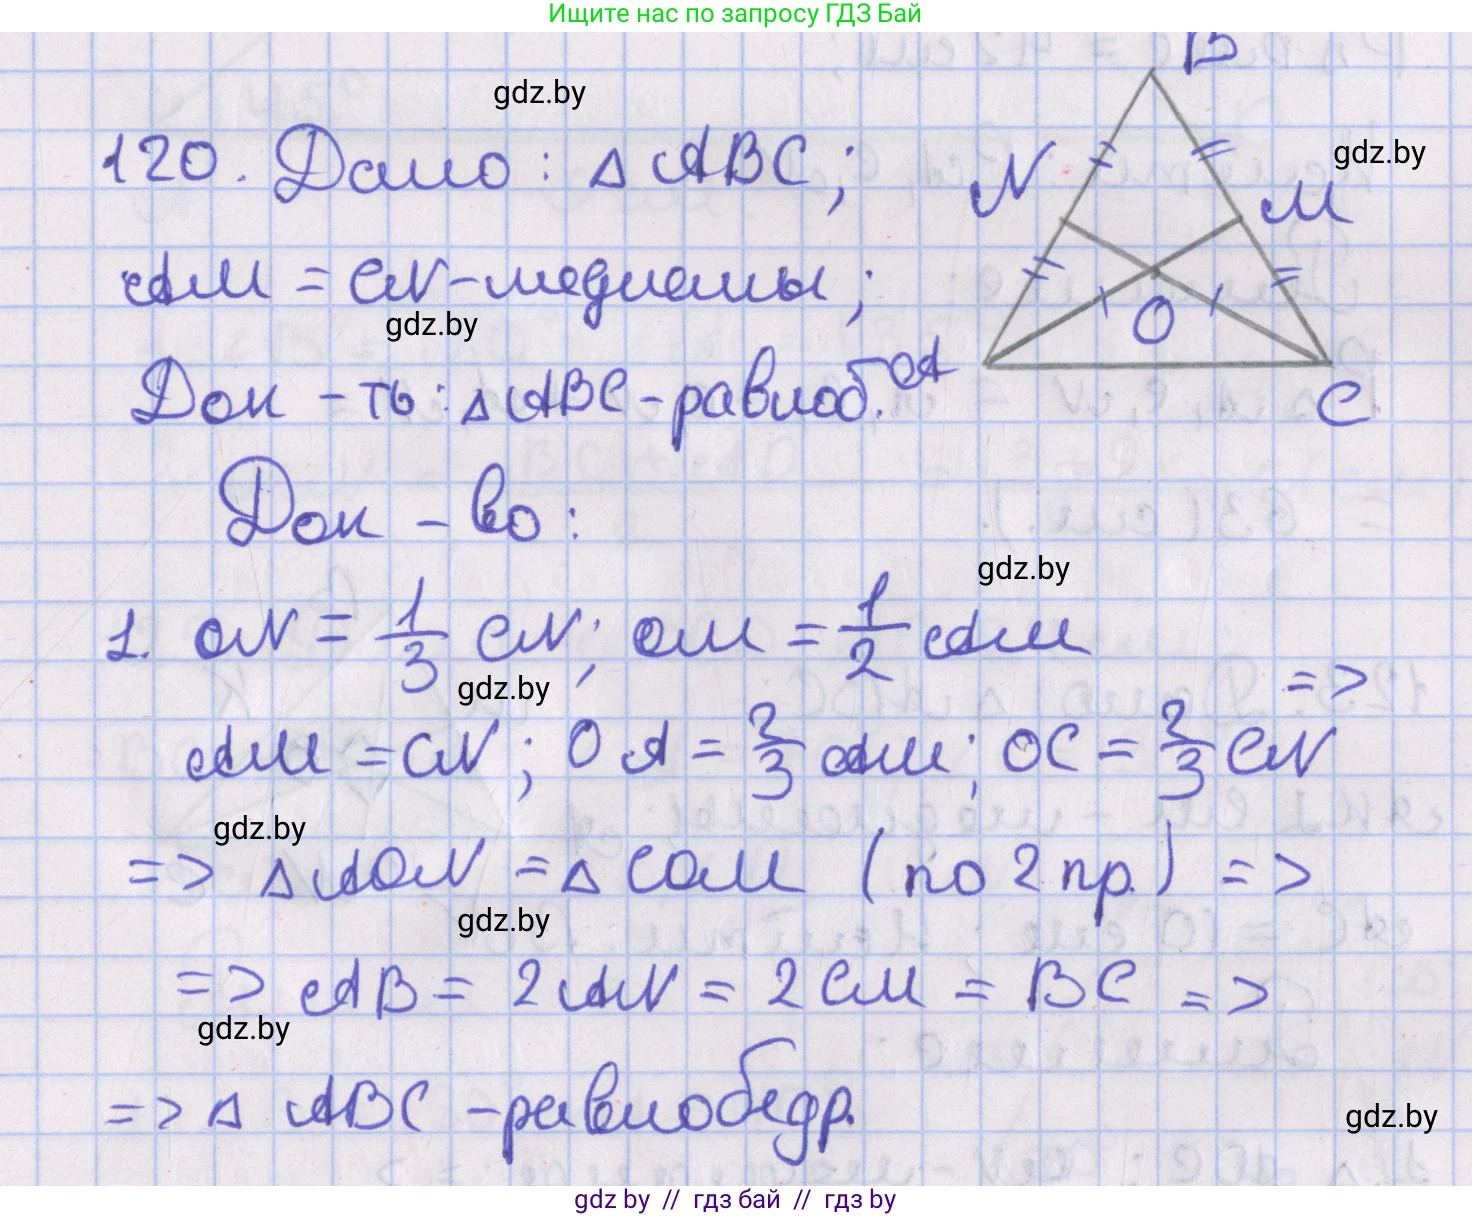 Ищите нас по запросу ГДЗ Бай
B
gdz.by
120. Дано: △ ABC;
gdz.by
N
M
AM = CN - медианы;
gdz.by
O
Док - ть: △ ABC - равноб.
A
C
Док - во:
gdz.by
1. ON = 1/3 CN; OM = 1/2 AM
gdz.by
=>
AM = CN; OA = 2/3 AM; OC = 2/3 CN
gdz.by
=> △ AON = △ COM (по 2 пр.) =>
gdz.by
=> AB = 2 AN = 2 CM = BC =>
gdz.by
=> △ ABC - равнобедр.
gdz.by
gdz by // гдз бай // гдз by